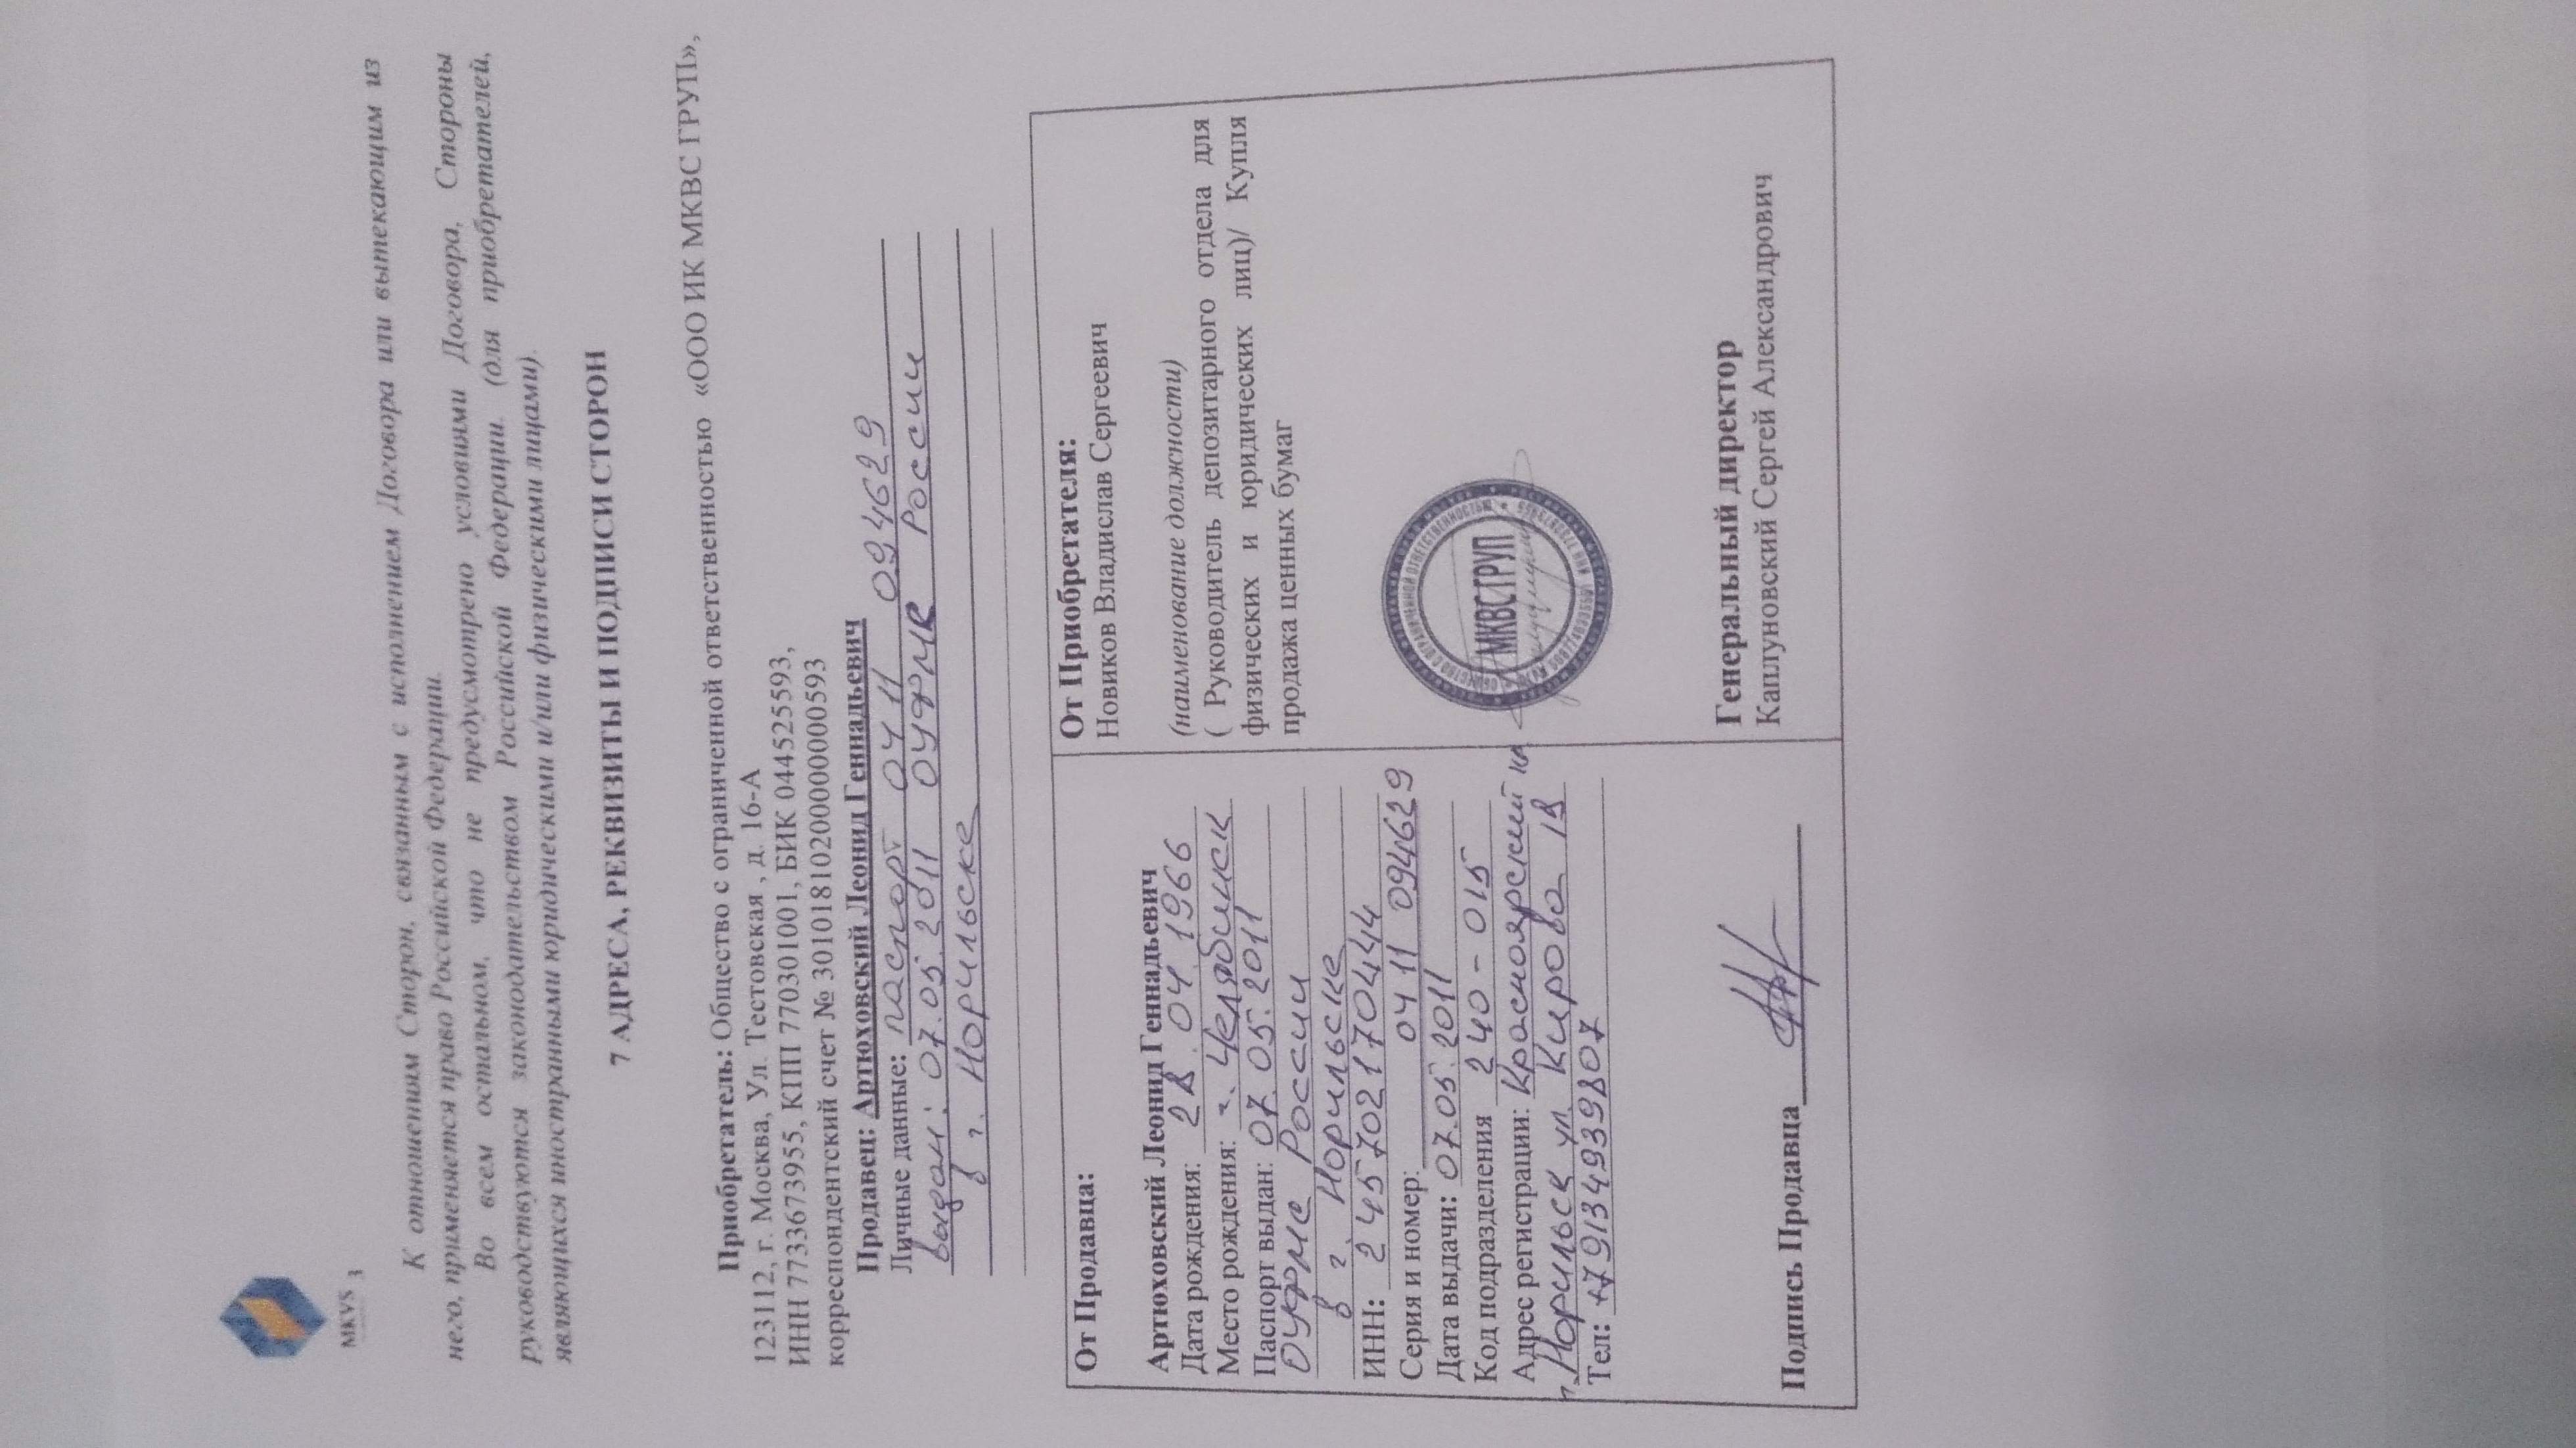 MKVS
К отношениям Сторон, связанным с исполнением Договора или вытекающим из
него, применяется право Российской Федерации.
Во всем остальном, что не предусмотрено условиями Договора, Стороны
руководствуются законодательством Российской Федерации. (для приобретателей,
являющихся иностранными юридическими и/или физическими лицами).
7 АДРЕСА, РЕКВИЗИТЫ И ПОДПИСИ СТОРОН
Приобретатель: Общество с ограниченной ответственностью «ООО ИК МКВС ГРУП»,
123112, г. Москва, Ул. Тестовская , д. 16-А
ИНН 7733673955, КПП 770301001, БИК 044525593,
корреспондентский счет № 30101810200000000593
Продавец: Артюховский Леонид Геннадьевич
Личные данные: паспорт 04 11 094629
выдан: 07.05.2011 ОУФМС России
в г. Норильске
От Продавца:
Артюховский Леонид Геннадьевич
Дата рождения: 28.04.1966
Место рождения: г. Челябинск
Паспорт выдан: 07.05.2011
ОУФМС России
в г. Норильске
ИНН: 245702170444
Серия и номер: 04 11 094629
Дата выдачи: 07.05.2011
Код подразделения 240-015
Адрес регистрации: Красноярский
г. Норильск ул. Кирова 18
Тел: +79134939807
Подпись Продавца
От Приобретателя:
Новиков Владислав Сергеевич
(наименование должности)
( Руководитель депозитарного отдела для
физических и юридических лиц)/ Купля
продажа ценных бумаг
МКВС ГРУП
Генеральный директор
Каплуновский Сергей Александрович